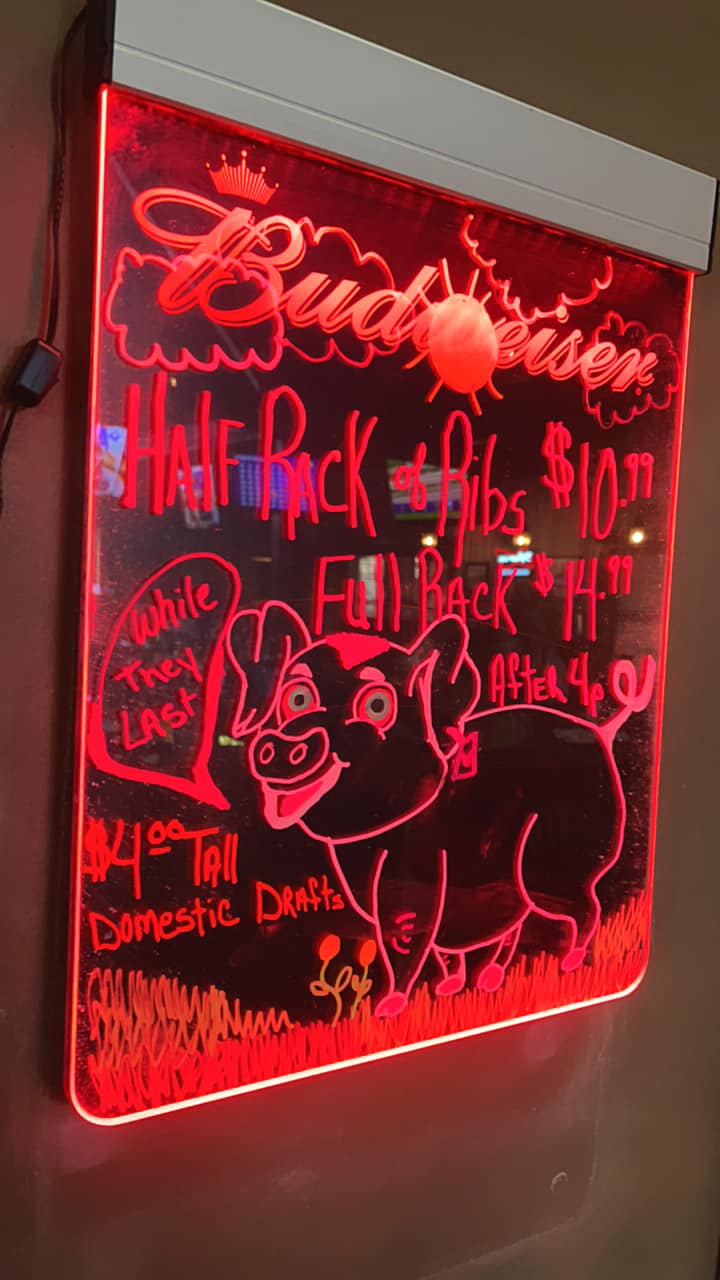 Budweiser
Half Rack of Ribs $10.99
Full Rack $14.99
After 4p
While
They
Last
$4.00 Tall
Domestic Drafts